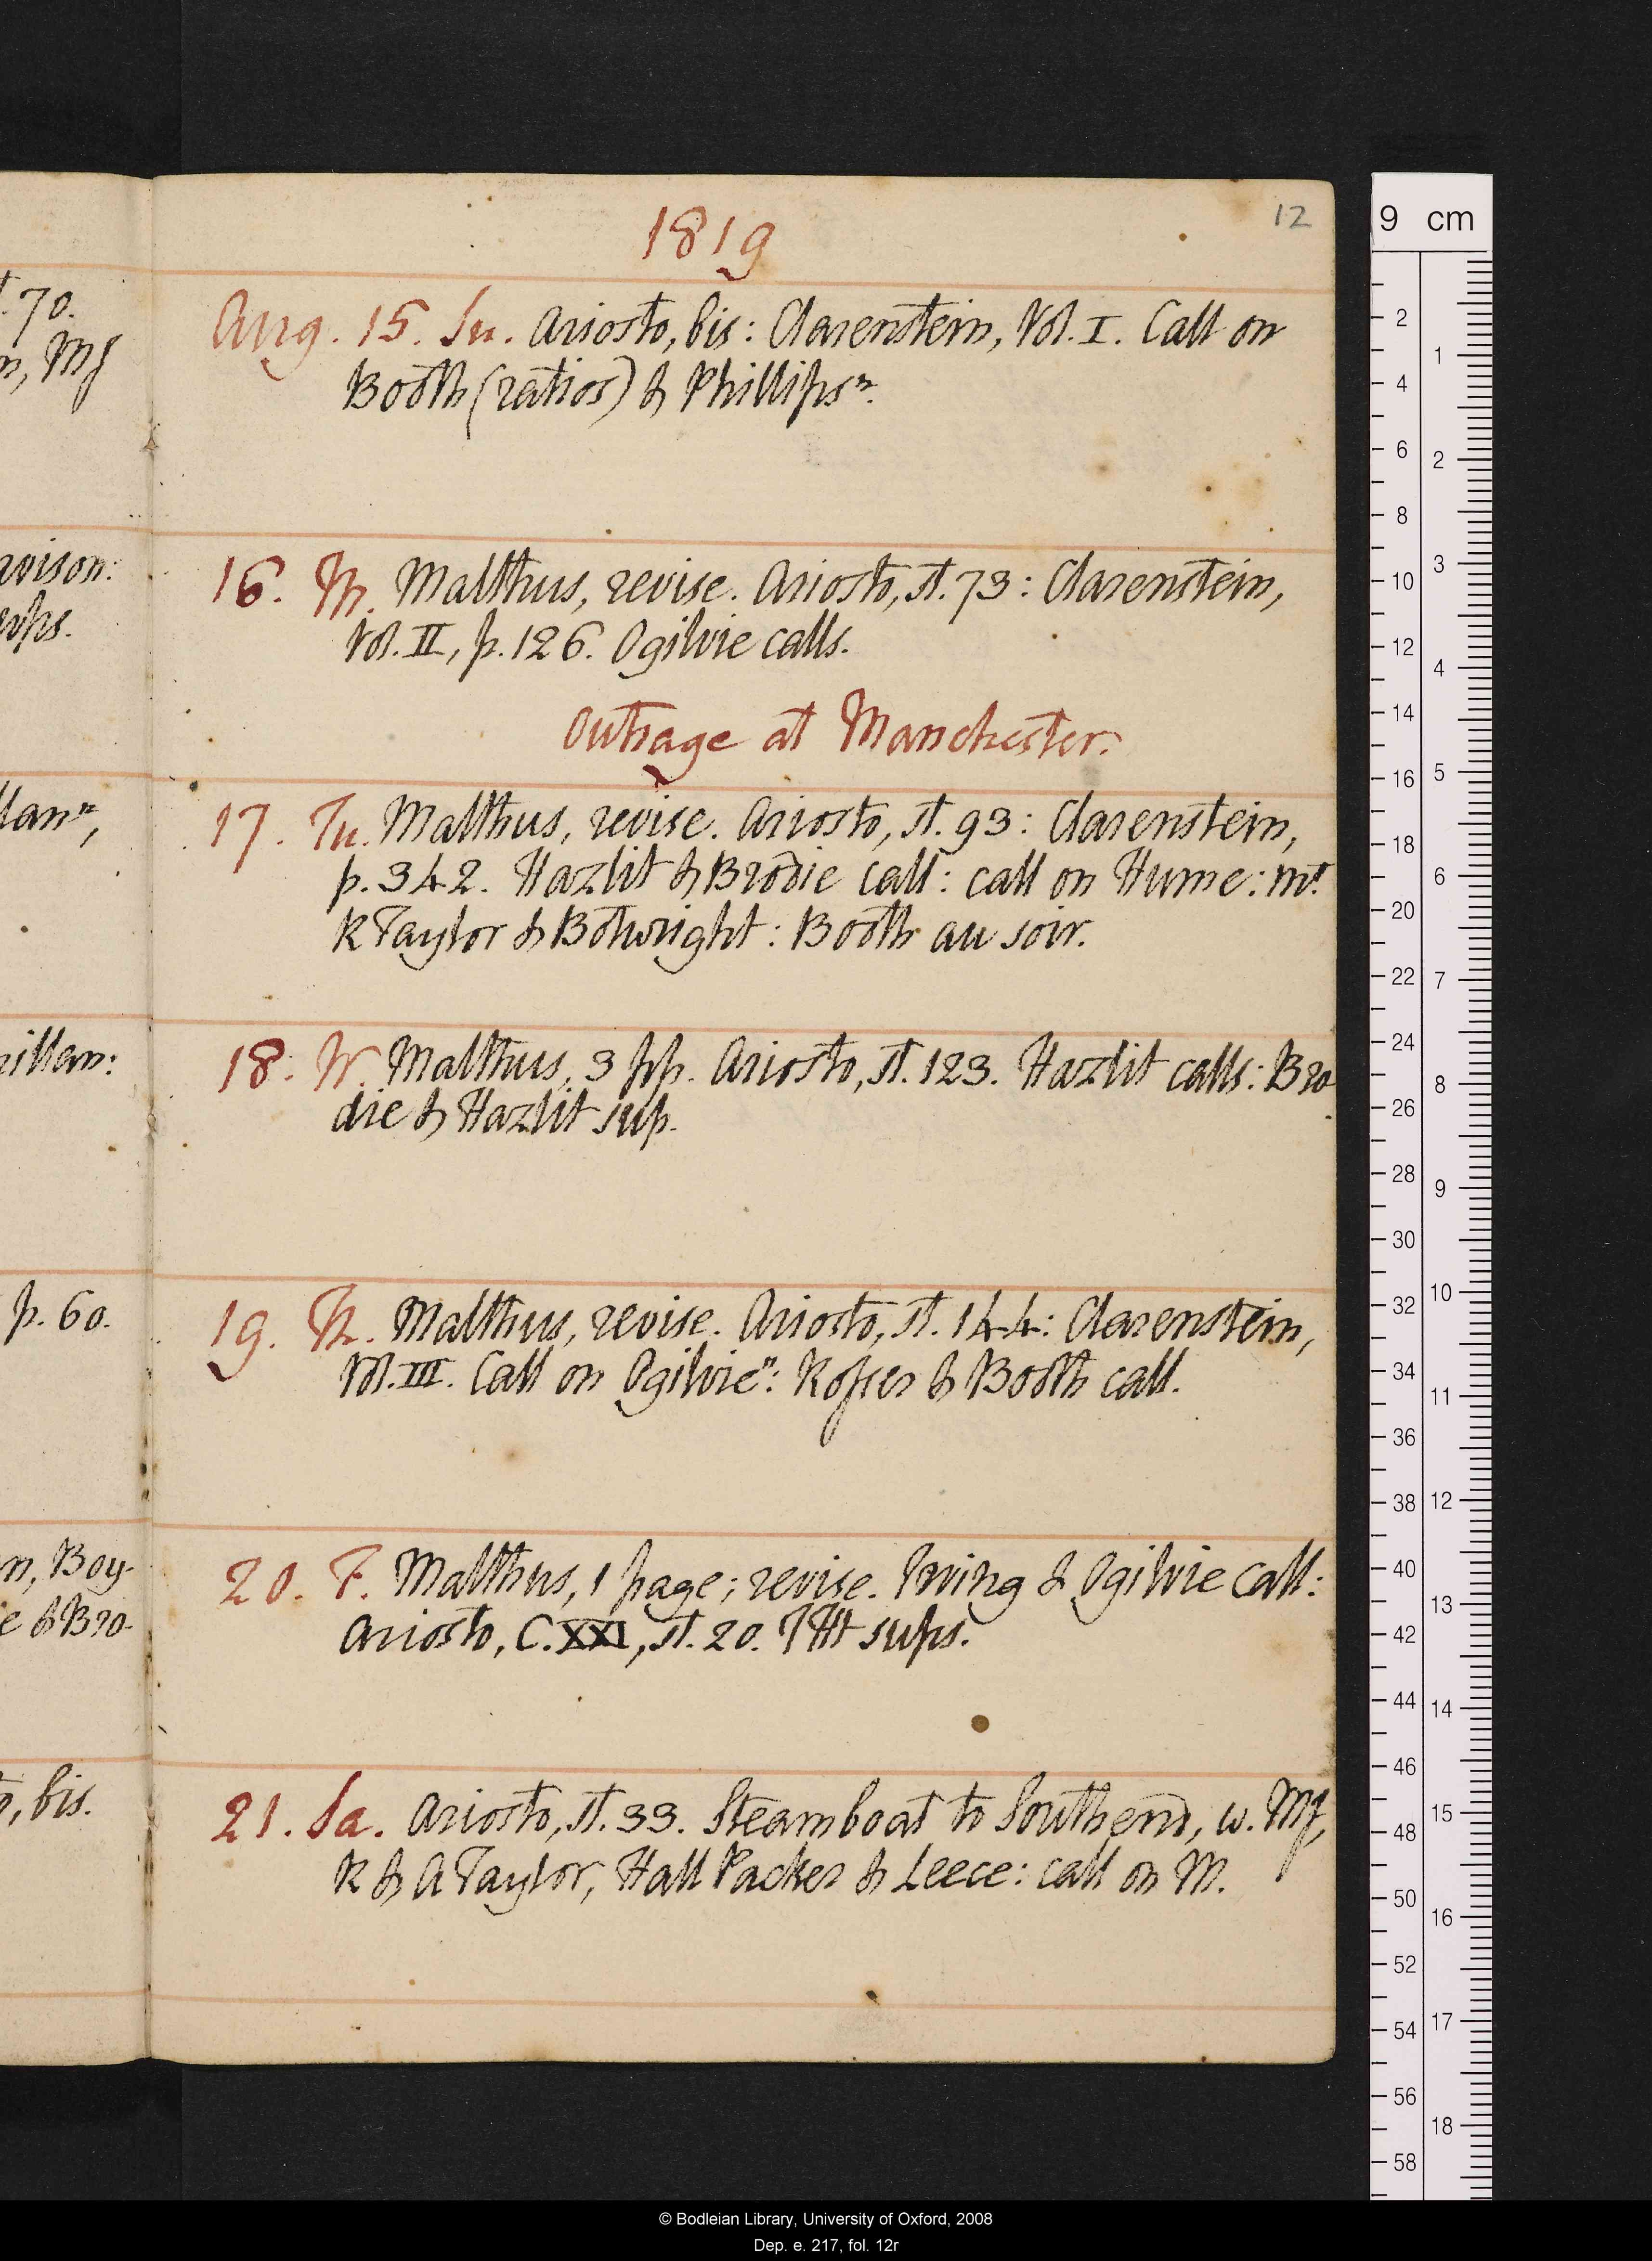 1819
12
Aug. 15. Su. Ariosto, bis: Clarenstein, Vol. I. Call on
Booth (ratios) & Phillips n.
16. M. Malthus, revise. Ariosto, st. 73: Clarenstein,
Vol. II, p. 126. Ogilvie calls.
Outrage at Manchester.
17. Tu. Malthus, revise. Ariosto, st. 93: Clarenstein,
p. 342. Hazlit & Brodie call: call on Hume: mt
R Taylor & Botwright: Booth au soir.
18. W. Malthus, 3 pp. Ariosto, st. 123. Hazlit calls: Bro
die & Hazlit sup.
19. Th. Malthus, revise. Ariosto, st. 144: Clarenstein,
Vol. III. Call on Ogilvie n: Rosser & Booth call.
20. F. Malthus, 1 page; revise. Irving & Ogilvie call:
Ariosto, C. XXI, st. 20. THt sups.
21. Sa. Ariosto, st. 33. Steamboat to Southend, w. MJ,
R & A Taylor, Hall Packer & Leece: call on M.
t. 70.
n, MJ
avison:
sups.
llan n,
millan:
p. 60.
n, Boy-
e & Bro-
o, bis.
9 cm
2
4
6
8
10
12
14
16
18
20
22
24
26
28
30
32
34
36
38
40
42
44
46
48
50
52
54
56
58
1
2
3
4
5
6
7
8
9
10
11
12
13
14
15
16
17
18
© Bodleian Library, University of Oxford, 2008
Dep. e. 217, fol. 12r